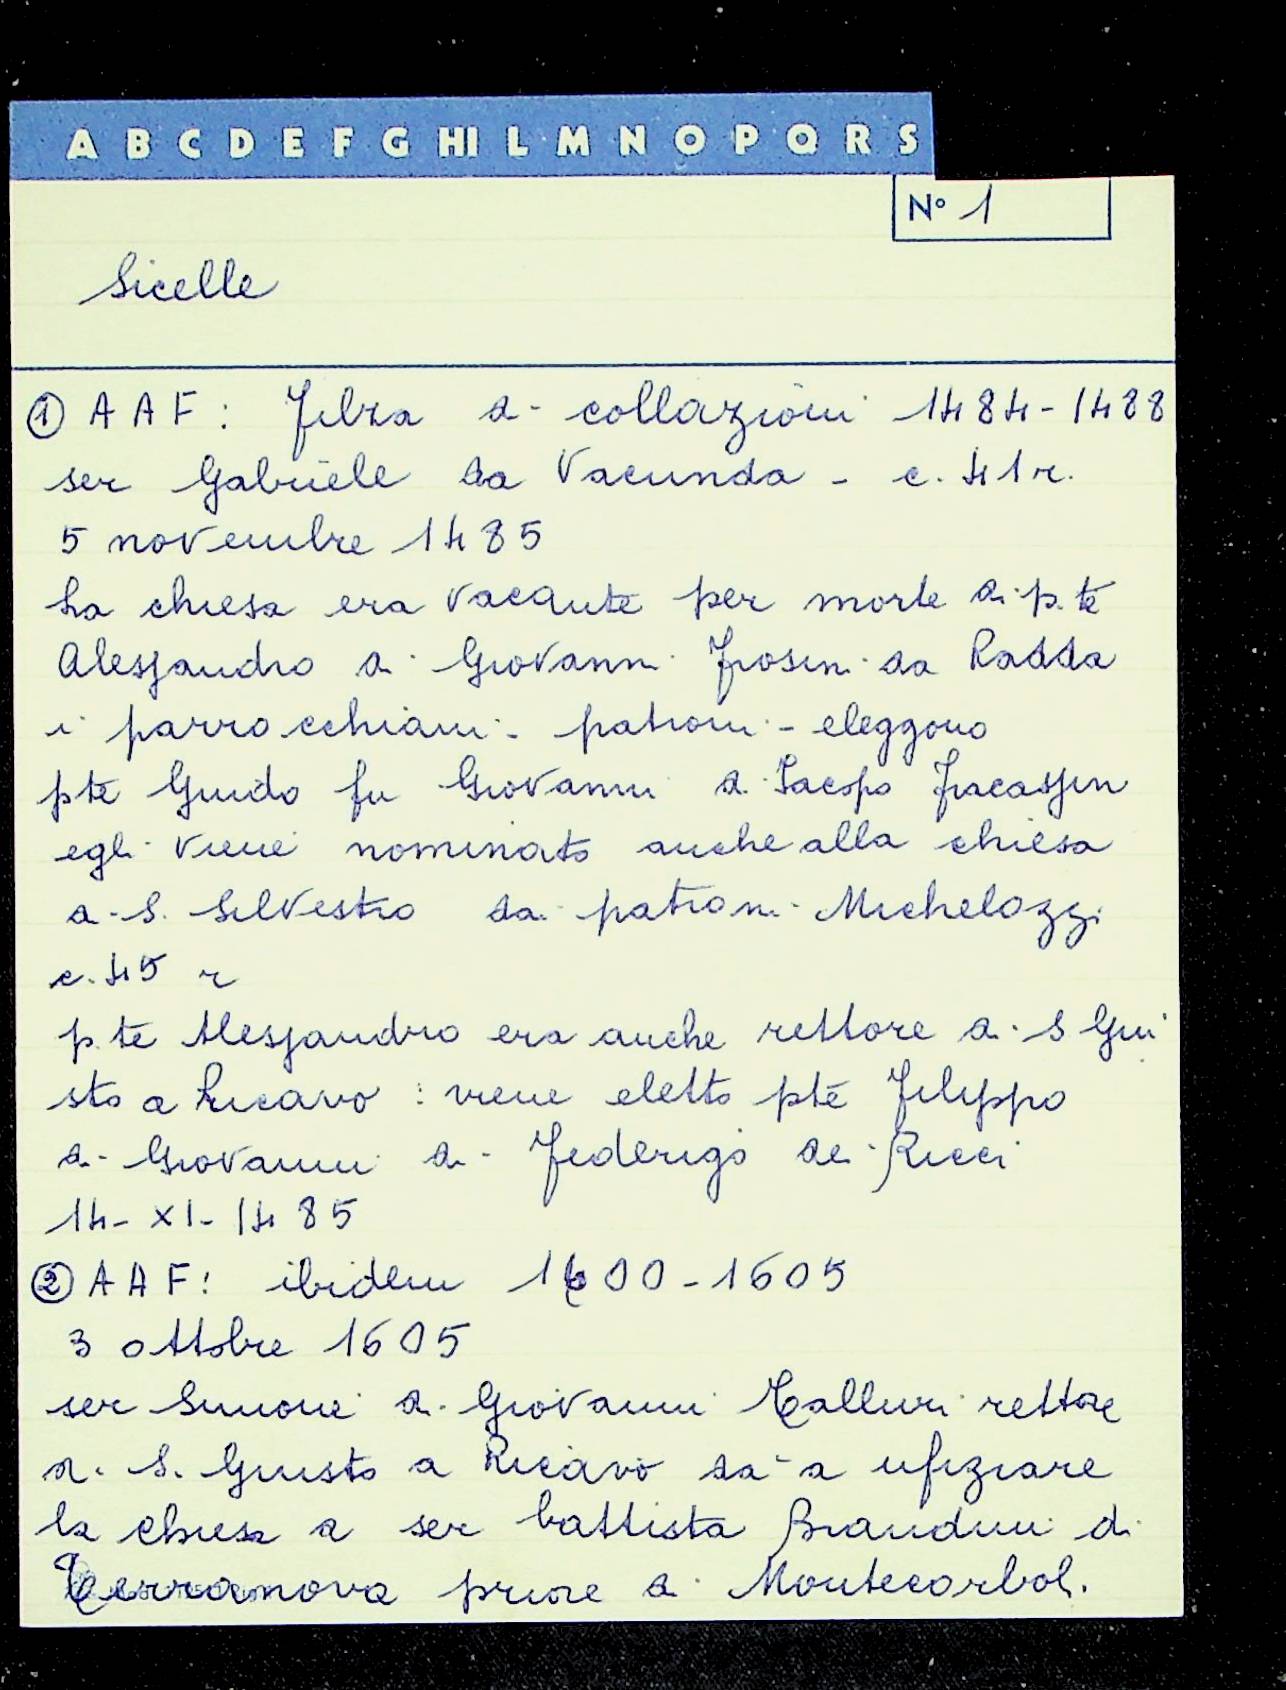 A B C D E F G HI L M N O P Q R S
N° 1
Sicelle
① AAF: Filza di collazioni 1484-1488
ser Gabriele da Vacunda - c. 41r.
5 novembre 1485
La chiesa era vacante per morte di p.te
Alessandro di Giovanni Frosini da Radda
i parrocchiani - patroni - eleggono
pte Guido fu Giovanni di Iacopo Fracassin
egli viene nominato anche alla chiesa
di S. Silvestro dai patroni Michelozzi
c. 45 r
p.te Alessandro era anche rettore di S Giu
sto a Ricavo : viene eletto pte Filippo
di Giovanni di Federigo dei Ricci
14-XI-1485
② AAF: ibidem 1600-1605
3 ottobre 1605
ser Simone di Giovanni Talluri rettore
di S. Giusto a Ricavo dà a ufiziare
la chiesa a ser battista Brandini di
Terranova priore di Montecorboli.